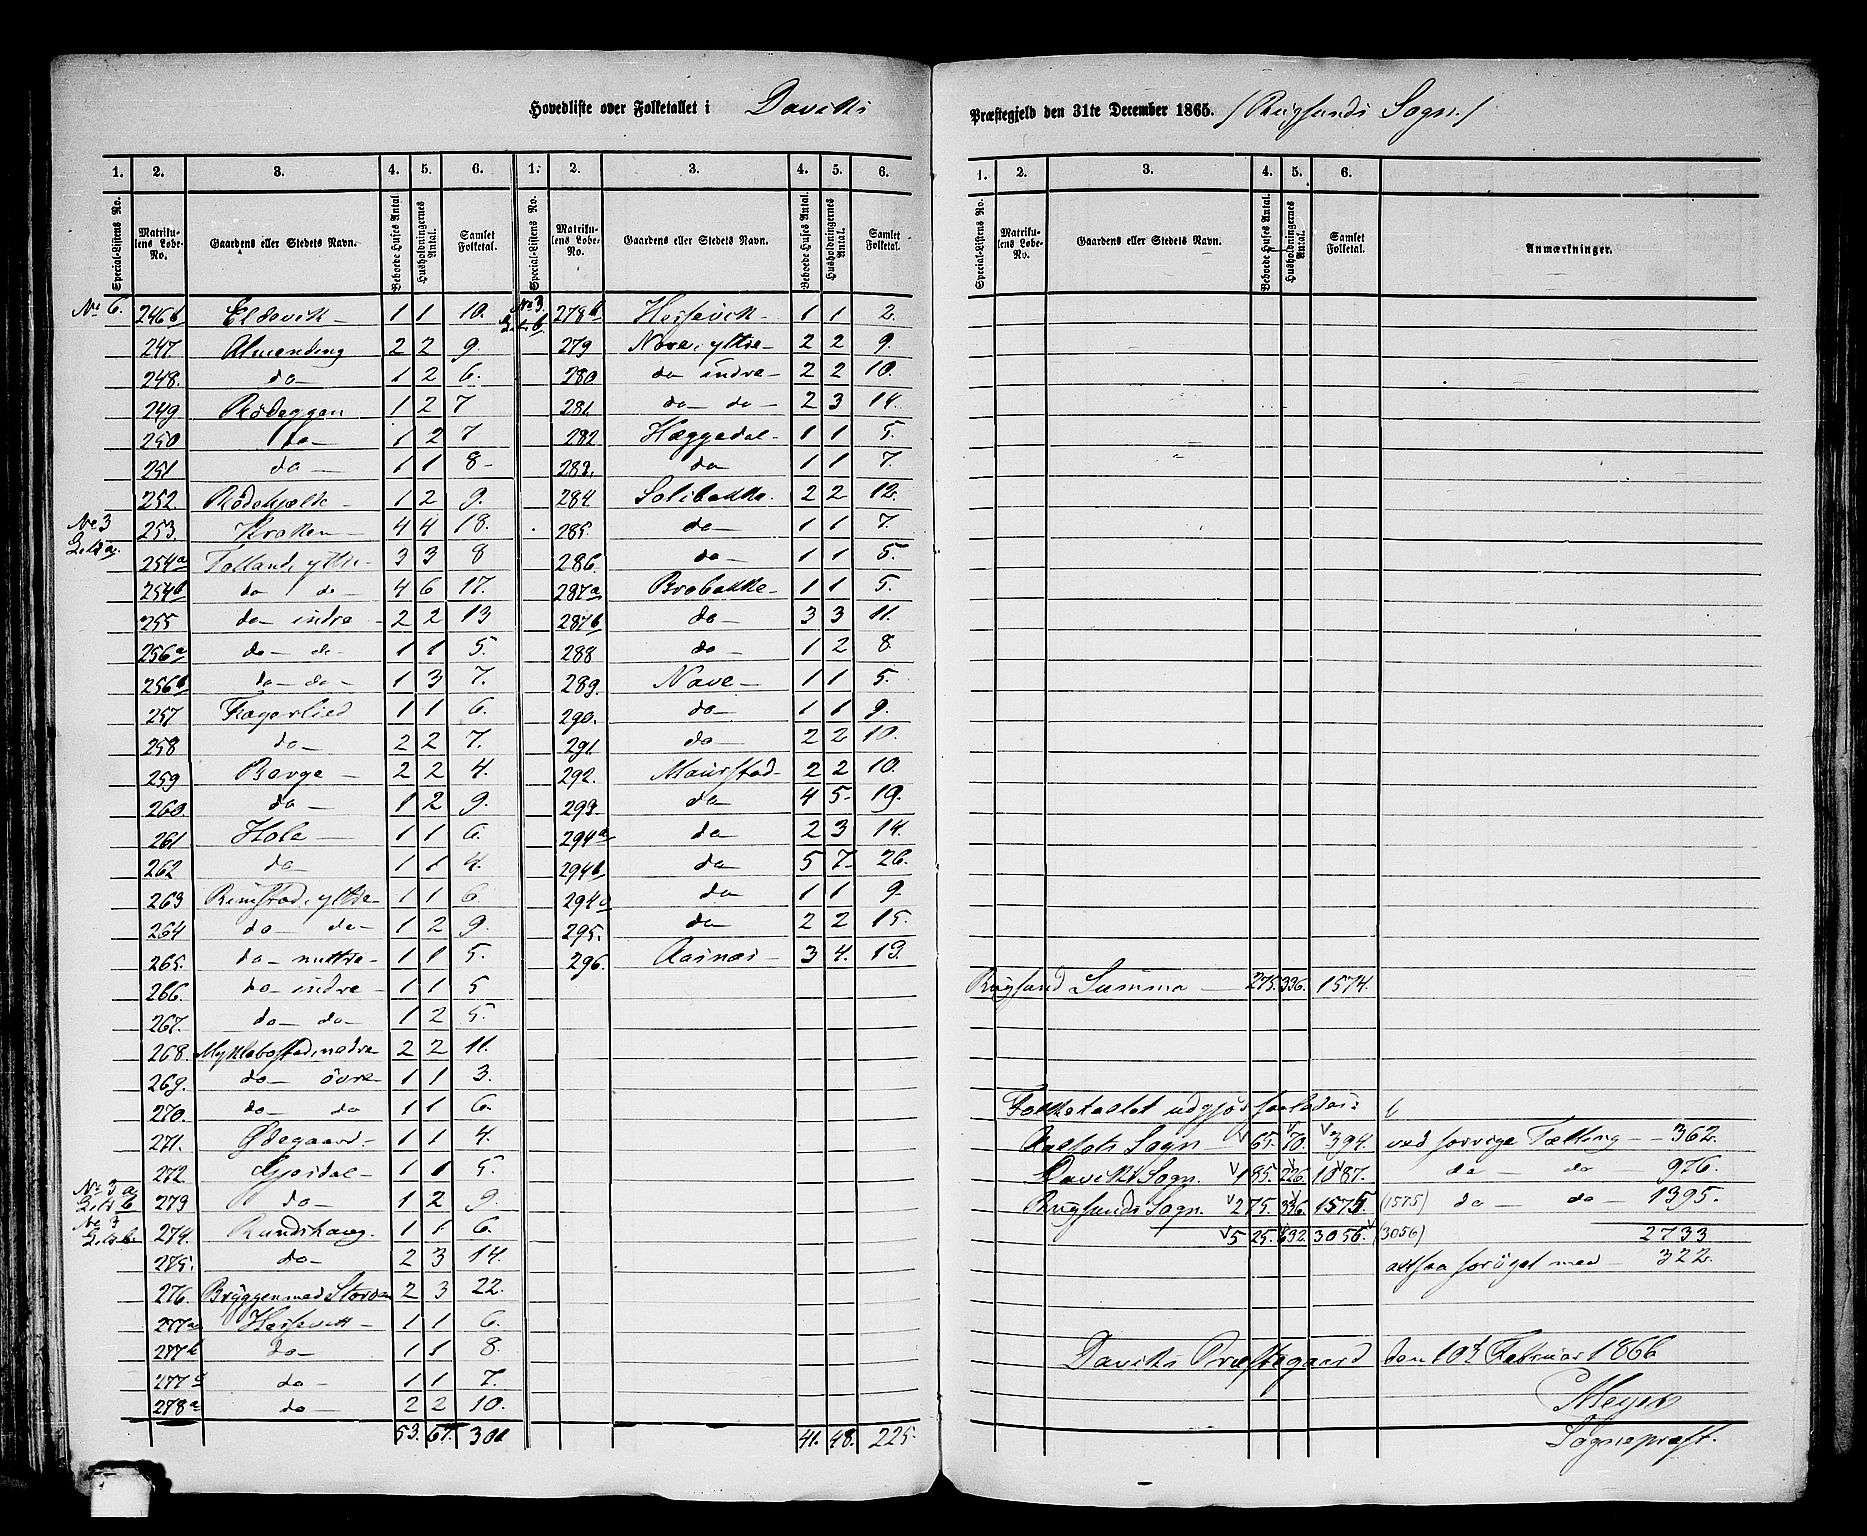 Hovedliste over Folketallet i Daviks Præstegjeld den 31te December 1865. /Rugsunds Sogn/
1. 2. 3. 4. 5. 6. 1. 2. 3. 4. 5. 6.
Special-Listens No. Matrikulens Løbe-No. Gaardens eller Stedets Navn. Beboede Huses Antal. Husholdningernes Antal. Samlet Folketal. Special-Listens No. Matrikulens Løbe-No. Gaardens eller Stedets Navn. Beboede Huses Antal. Husholdningernes Antal. Samlet Folketal.
No 6. 246b Eldevik 1 1 10.
247 Almending 2 2 9.
248. do 1 2 6.
249 Rödeggen 1 2 7
250 do 1 2 7
251 do 1 1 8
252. 1 2 9.
No 3 253. Kroken 4 4 18.
254a Totland, yttre 3 3 8
254b do do 4 6 17.
255 do indre 2 2 13
256a do do 1 1 5.
256b do do 1 3 7.
257 Fagerlied 1 1 6.
258 do 2 2 7.
259 Berge 2 2 4.
260. do 1 2 9.
261 Hole 1 1 6.
262 do 1 1 4.
263 Rimstad, yttre 1 1 6
264 do do 1 2 9.
265. do 1 1 5.
266. do indre 1 1 5
267. do do 1 2 5.
268. Myklebostad, nedre 2 2 11.
269. do övre 1 1 3.
270. do do 1 1 6.
271. Ødegaard 1 1 4.
272 Gjerdal 1 1 5.
No 3 273 do 1 2 9.
No 3 274. Rundshaug. 1 1 6.
275. do 2 3 14.
276. Bryggen med 2 3 22.
277a Hessevik 1 1 6.
277b do 1 1 8.
277c do 1 1 7.
278a do 2 2 10.
53. 67. 301
No 3 278b Hessevik 1 1 2.
279 Nave, yttre 2 2 9.
280 do indre 2 2 10.
281. do do 2 3 14.
282 Heggedal 1 1 5.
283. do 1 1 7.
284 Solibakke 2 2 12.
285. do 1 1 7.
286. do 1 1 5.
287a Brobakke 1 1 5.
287b do 3 3 11.
288 do 1 2 8
289. Nave 1 1 5.
290. do 1 1 9.
291. do 2 2 10.
292. Maurstad 2 2 10.
293. do 4 5 19.
294a do 2 3 14.
294b do 5 7 26.
294c do 1 1 9
295. do 2 2 15.
296. Aasnæs 3 4. 13.
41. 48. 225.
1. 2. 3. 4. 5. 6.
Special-Listens No. Matrikulens Løbe-No. Gaardens eller Stedets Navn. Beboede Huses Antal. Husholdningernes Antal. Samlet Folketal. Anmærkninger.
Rugsund Summa 275. 336. 1574.
Folketallet udgjör saaledes:
Aalfots Sogn 65. 70. 394. ved forrige Tælling 362.
Daviks Sogn. 185. 226. 1087. do do 976.
Rugsunds Sogn. 275. 336. 1575 (1575) do do 1395.
525. 632. 3056. (3056) 2733
altsaa forøget med 322.
Daviks Præstegaard den 10de Februar 1866
Meyer
Sognepræst.